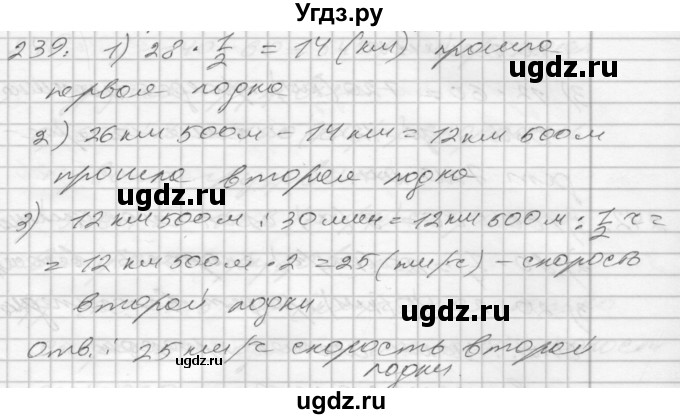 Угдз.ру
239. 1) 28 · 1/2 = 14 (км) прошла
ugdz.ru
первая лодка
ugdz.ru
2) 26км 500м – 14км = 12км 500м
прошла вторая лодка
ugdz.ru
3) 12км500м : 30мин = 12км500м : 1/2 ч =
= 12км500м · 2 = 25 (км/ч) – скорость
ugdz.ru
ugdz.ru
второй лодки
Отв.: 25 км/ч скорость второй
ugdz.ru
лодки.
ugdz.ru